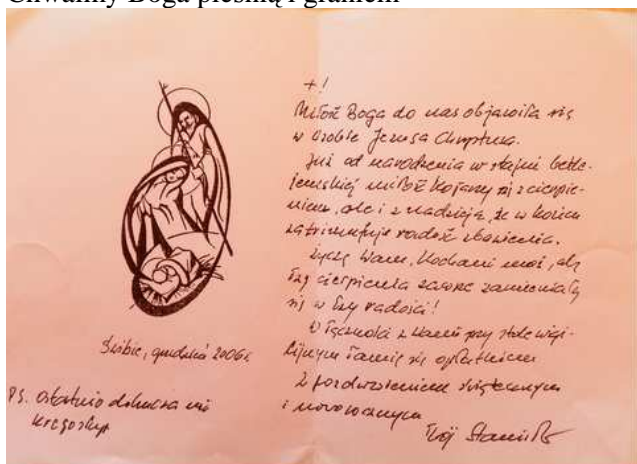 Chwalmy Boga pieśnią i graniem
+!
Miłość Boga do nas objawiła się
w osobie Jezusa Chrystusa.
Już od narodzenia w stajni betle-
jemskiej miłość kojarzy się z cierpie-
niem, ale i z nadzieją, że w końcu
zatriumfuje radość zbawienia.
Życzę Wam, Kochani moi, aby
łzy cierpienia zawsze zamieniały
się w łzy radości!
W łączności z Wami przy stole wigi-
lijnym łamię się opłatkiem
Z pozdrowieniem świątecznym
i noworocznym
Twój
grudzień 2006 r.
PS. Ostatnio dokucza mi
kręgosłup